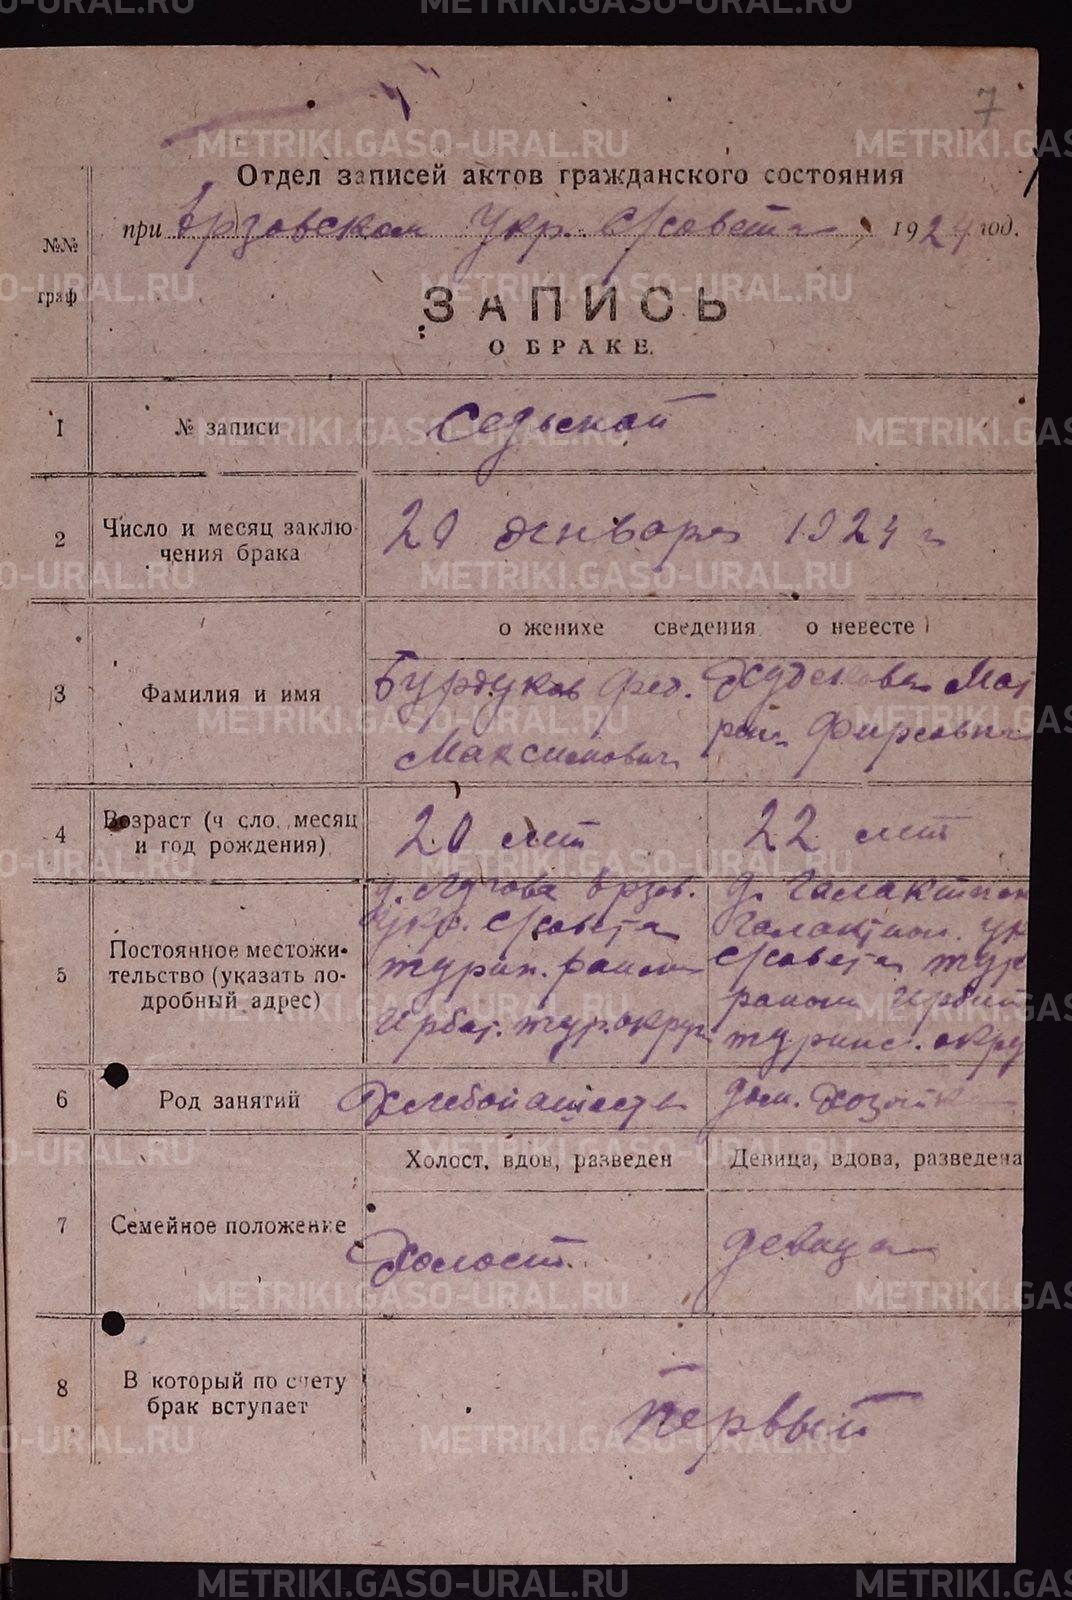 7
Отдел записей актов гражданского состояния
при Ерзовском Укр. С/совета, 1924 год.
№№
граф
ЗАПИСЬ
О БРАКЕ.
1 № записи Седьмой
2 Число и месяц заключения брака 20 января 1924 г
о женихе сведения о невесте
3 Фамилия и имя
Бурдуков Фед.
Максимович
Худякова Мар
рия Фирсовна
4 Возраст (ч сло, месяц
и год рождения)
20 лет
22 лет
5 Постоянное местожи-
тельство (указать по-
дробный адрес)
Укр. С/совета
турин. района
Ирбит. тур. округ
д. Галактион
Галактион. ук
С/совета тур
района Ирбит
туринс. окру
6 Род занятий
Хлебопашеств
дом. Хозяйка
Холост, вдов, разведен
Девица, вдова, разведена
7 Семейное положение
Холост.
девица
8 В который по счету
брак вступает
первый
METRIKI.GASO-URAL.RU